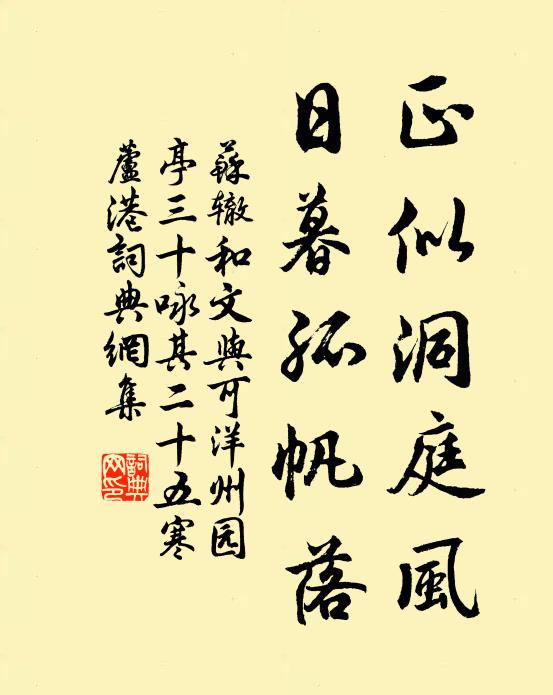 正似洞庭風
日暮孤帆落
蘇辙和文與可洋州园
亭三十咏其二十五寒
蘆港詞典網集
詞典网印